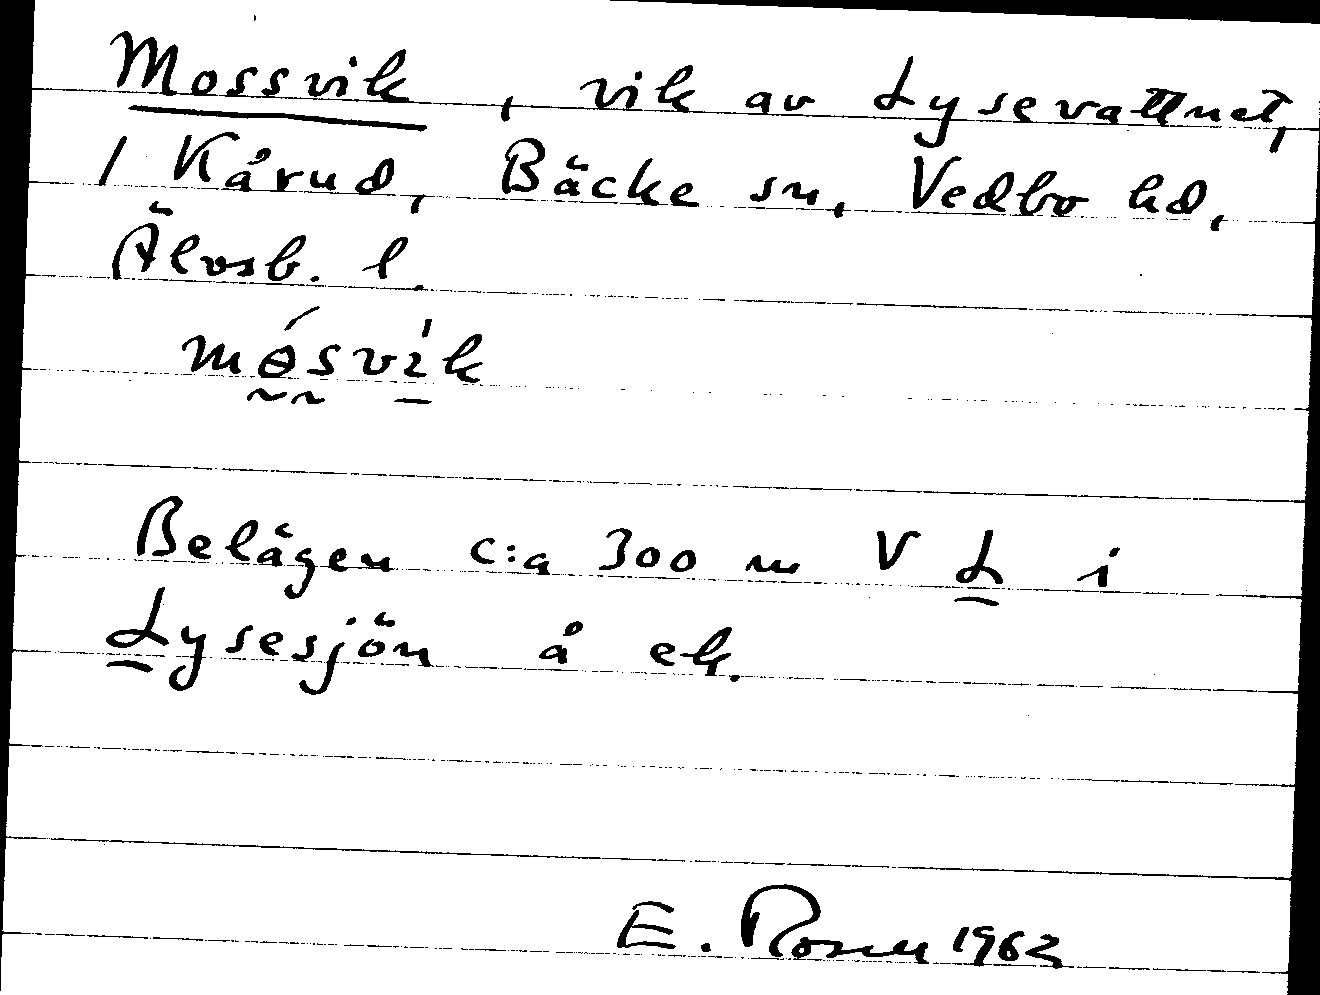 Mossvik, vik av Lysevattnet,
/ Kårud, Bäcke sn, Vedbo hd,
Älvsb. l.
mɵ́svìk
Belägen c:a 300 m V L i
Lysesjön å ek.
E. Rosen 1963